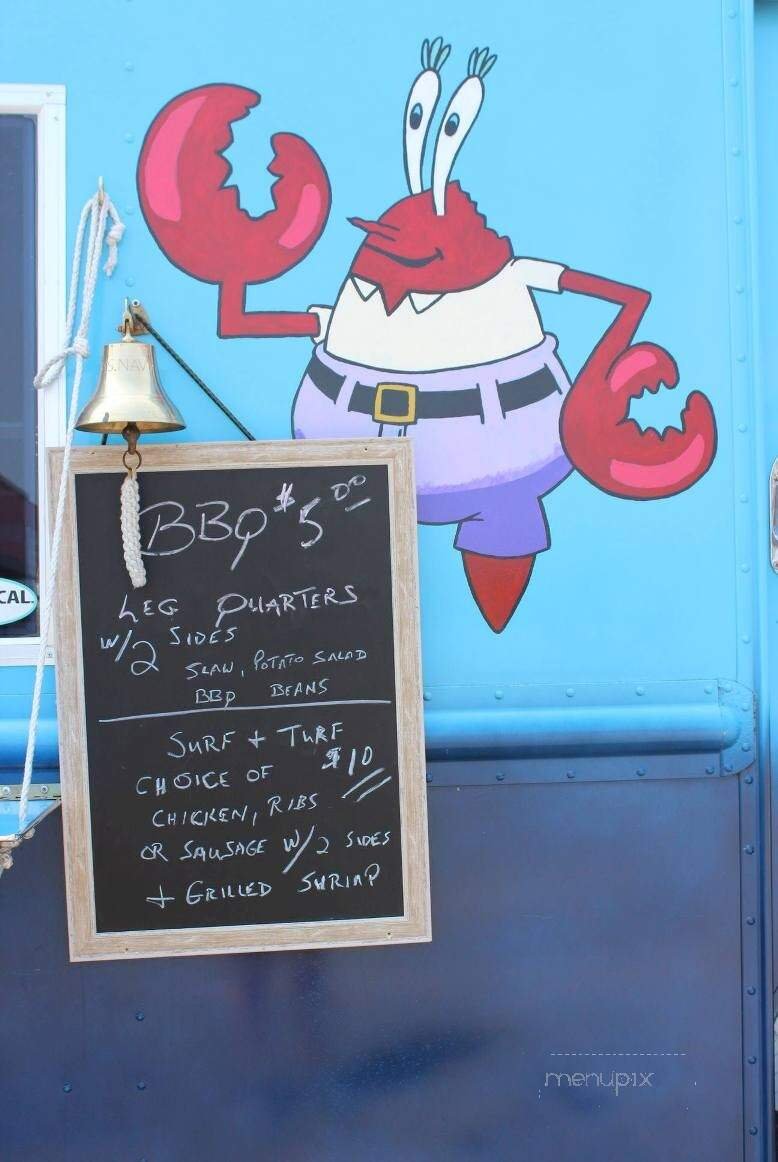 U.S. NAVY
CAL.
BBQ $5.00
LEG QUARTERS
W/2 SIDES
SLAW, POTATO SALAD
BBQ BEANS
SURF + TURF
$10
CHOICE OF
CHICKEN, RIBS
OR SAUSAGE W/2 SIDES
+ GRILLED SHRIMP
menupix